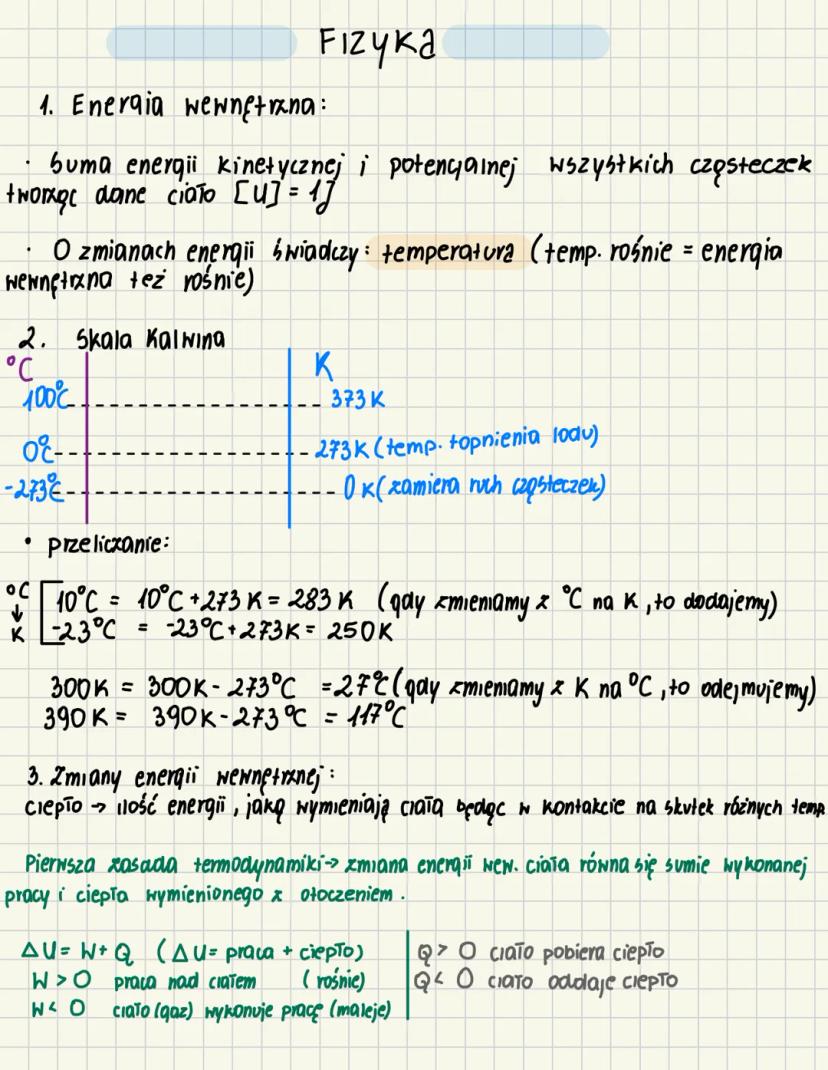 FIZYKA
1. Energia wewnętrzna:
· Suma energii kinetycznej i potencjalnej wszystkich cząsteczek
tworząc dane ciało [U] = 1J
· O zmianach energii świadczy: temperatura (temp. rośnie = energia
wewnętrzna też rośnie)
2. Skala Kalwina
°C K
100°C 373 K
0°C 273 K (temp. topnienia lodu)
-273°C 0 K (zamiera ruch cząsteczek)
• przeliczanie:
°C ↓ K
10°C = 10°C + 273 K = 283 K (gdy zmieniamy z °C na K, to dodajemy)
-23°C = -23°C + 273K = 250K
300K = 300K - 273°C = 27°C (gdy zmieniamy z K na °C, to odejmujemy)
390K = 390K - 273°C = 117°C
3. Zmiany energii wewnętrznej:
ciepło → ilość energii, jaką wymieniają ciała będąc w kontakcie na skutek różnych temp
Pierwsza zasada termodynamiki → zmiana energii wew. ciała równa się sumie wykonanej
pracy i ciepła wymienionego z otoczeniem.
ΔU = W + Q (ΔU = praca + ciepło)
W > 0 praca nad ciałem (rośnie)
W < 0 ciało (gaz) wykonuje pracę (maleje)
Q > 0 ciało pobiera ciepło
Q < 0 ciało oddaje ciepło